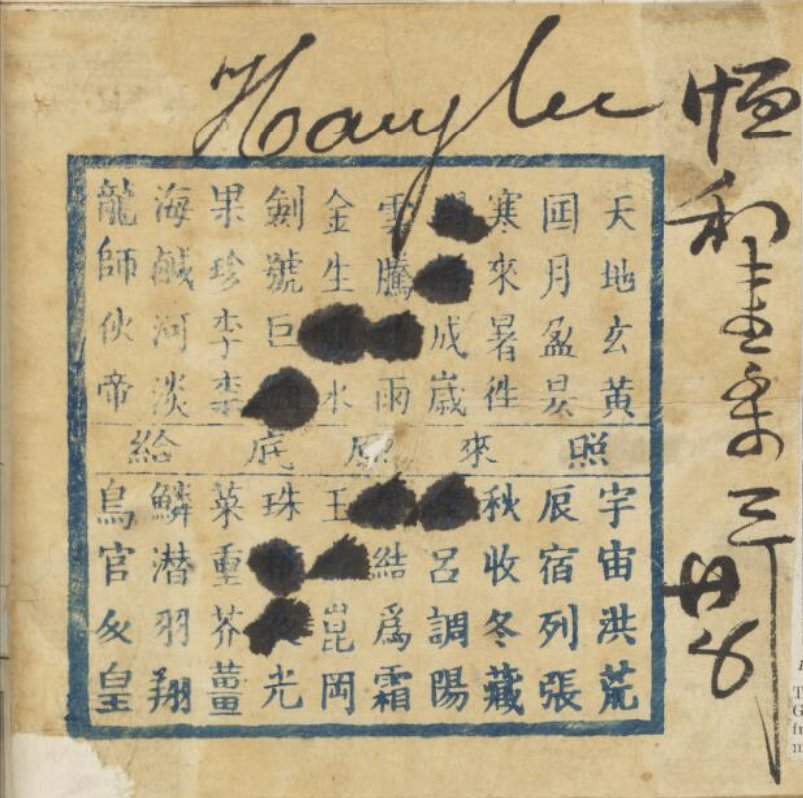 Hang lee
恒和
天地玄黃
囸月盈昃
寒來暑徃
成歲
雲騰雨
金生水
劍號巨
果珍李柰
海鹹河淡
龍師伙帝
照來原底給
宇宙洪荒
辰宿列張
秋收冬藏
呂調陽
結爲霜
玉崑岡
珠光
菜重芥薑
鱗潜羽翔
鳥官皇